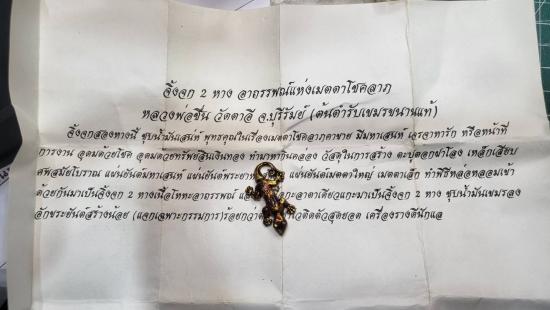 จิ้งจก 2 หาง อาถรรพณ์แห่งเมตตาโชคลาภ
หลวงพ่อชื่น วัดตาอี จ.บุรีรัมย์ (ต้นตำรับเขมรขนานแท้)
จิ้งจกสองหางนี้ ชุบน้ำมันเสน่ห์ พุทธคุณในเรื่องเมตตาโชคลาภค้าขาย มีมหาเสน่ห์ เจรจาทารัก หรือหน้าที่
การงาน อุดมด้วยโชค อุดมด้วยทรัพย์สินเงินทอง ทำมาหากินคล่อง วัสดุในการสร้าง ตะปูตอกฝาโลง เหล็กเสียบ
ศพสมัยโบราณ แผ่นยันต์มหาเสน่ห์ แผ่นยันต์พระยา แผ่นยันต์เมตตาใหญ่ เมตตาเล็ก ทำพิธีหล่อหลอมเข้า
ด้วยกันมาเป็นจิ้งจก 2 หางเนื้อโลหะอาถรรพณ์ และ กะลาตาเดียวแกะมาเป็นจิ้งจก 2 หาง ชุบน้ำมันเขมรลง
อักขระยันต์สร้างน้อย (แจกเฉพาะกรรมการ) ร้อยกว่า ติดตัวสุดยอด เครื่องรางดีนักแล